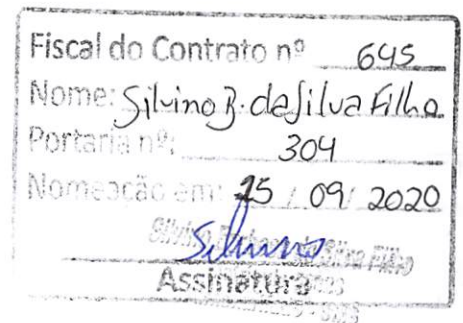 Fiscal do Contrato nº 645
Nome: Silvino B. da Silva Filho
Portaria nº: 304
Nomeação em: 25 / 09 / 2020
Silvino da Silva Filho
Assinatura